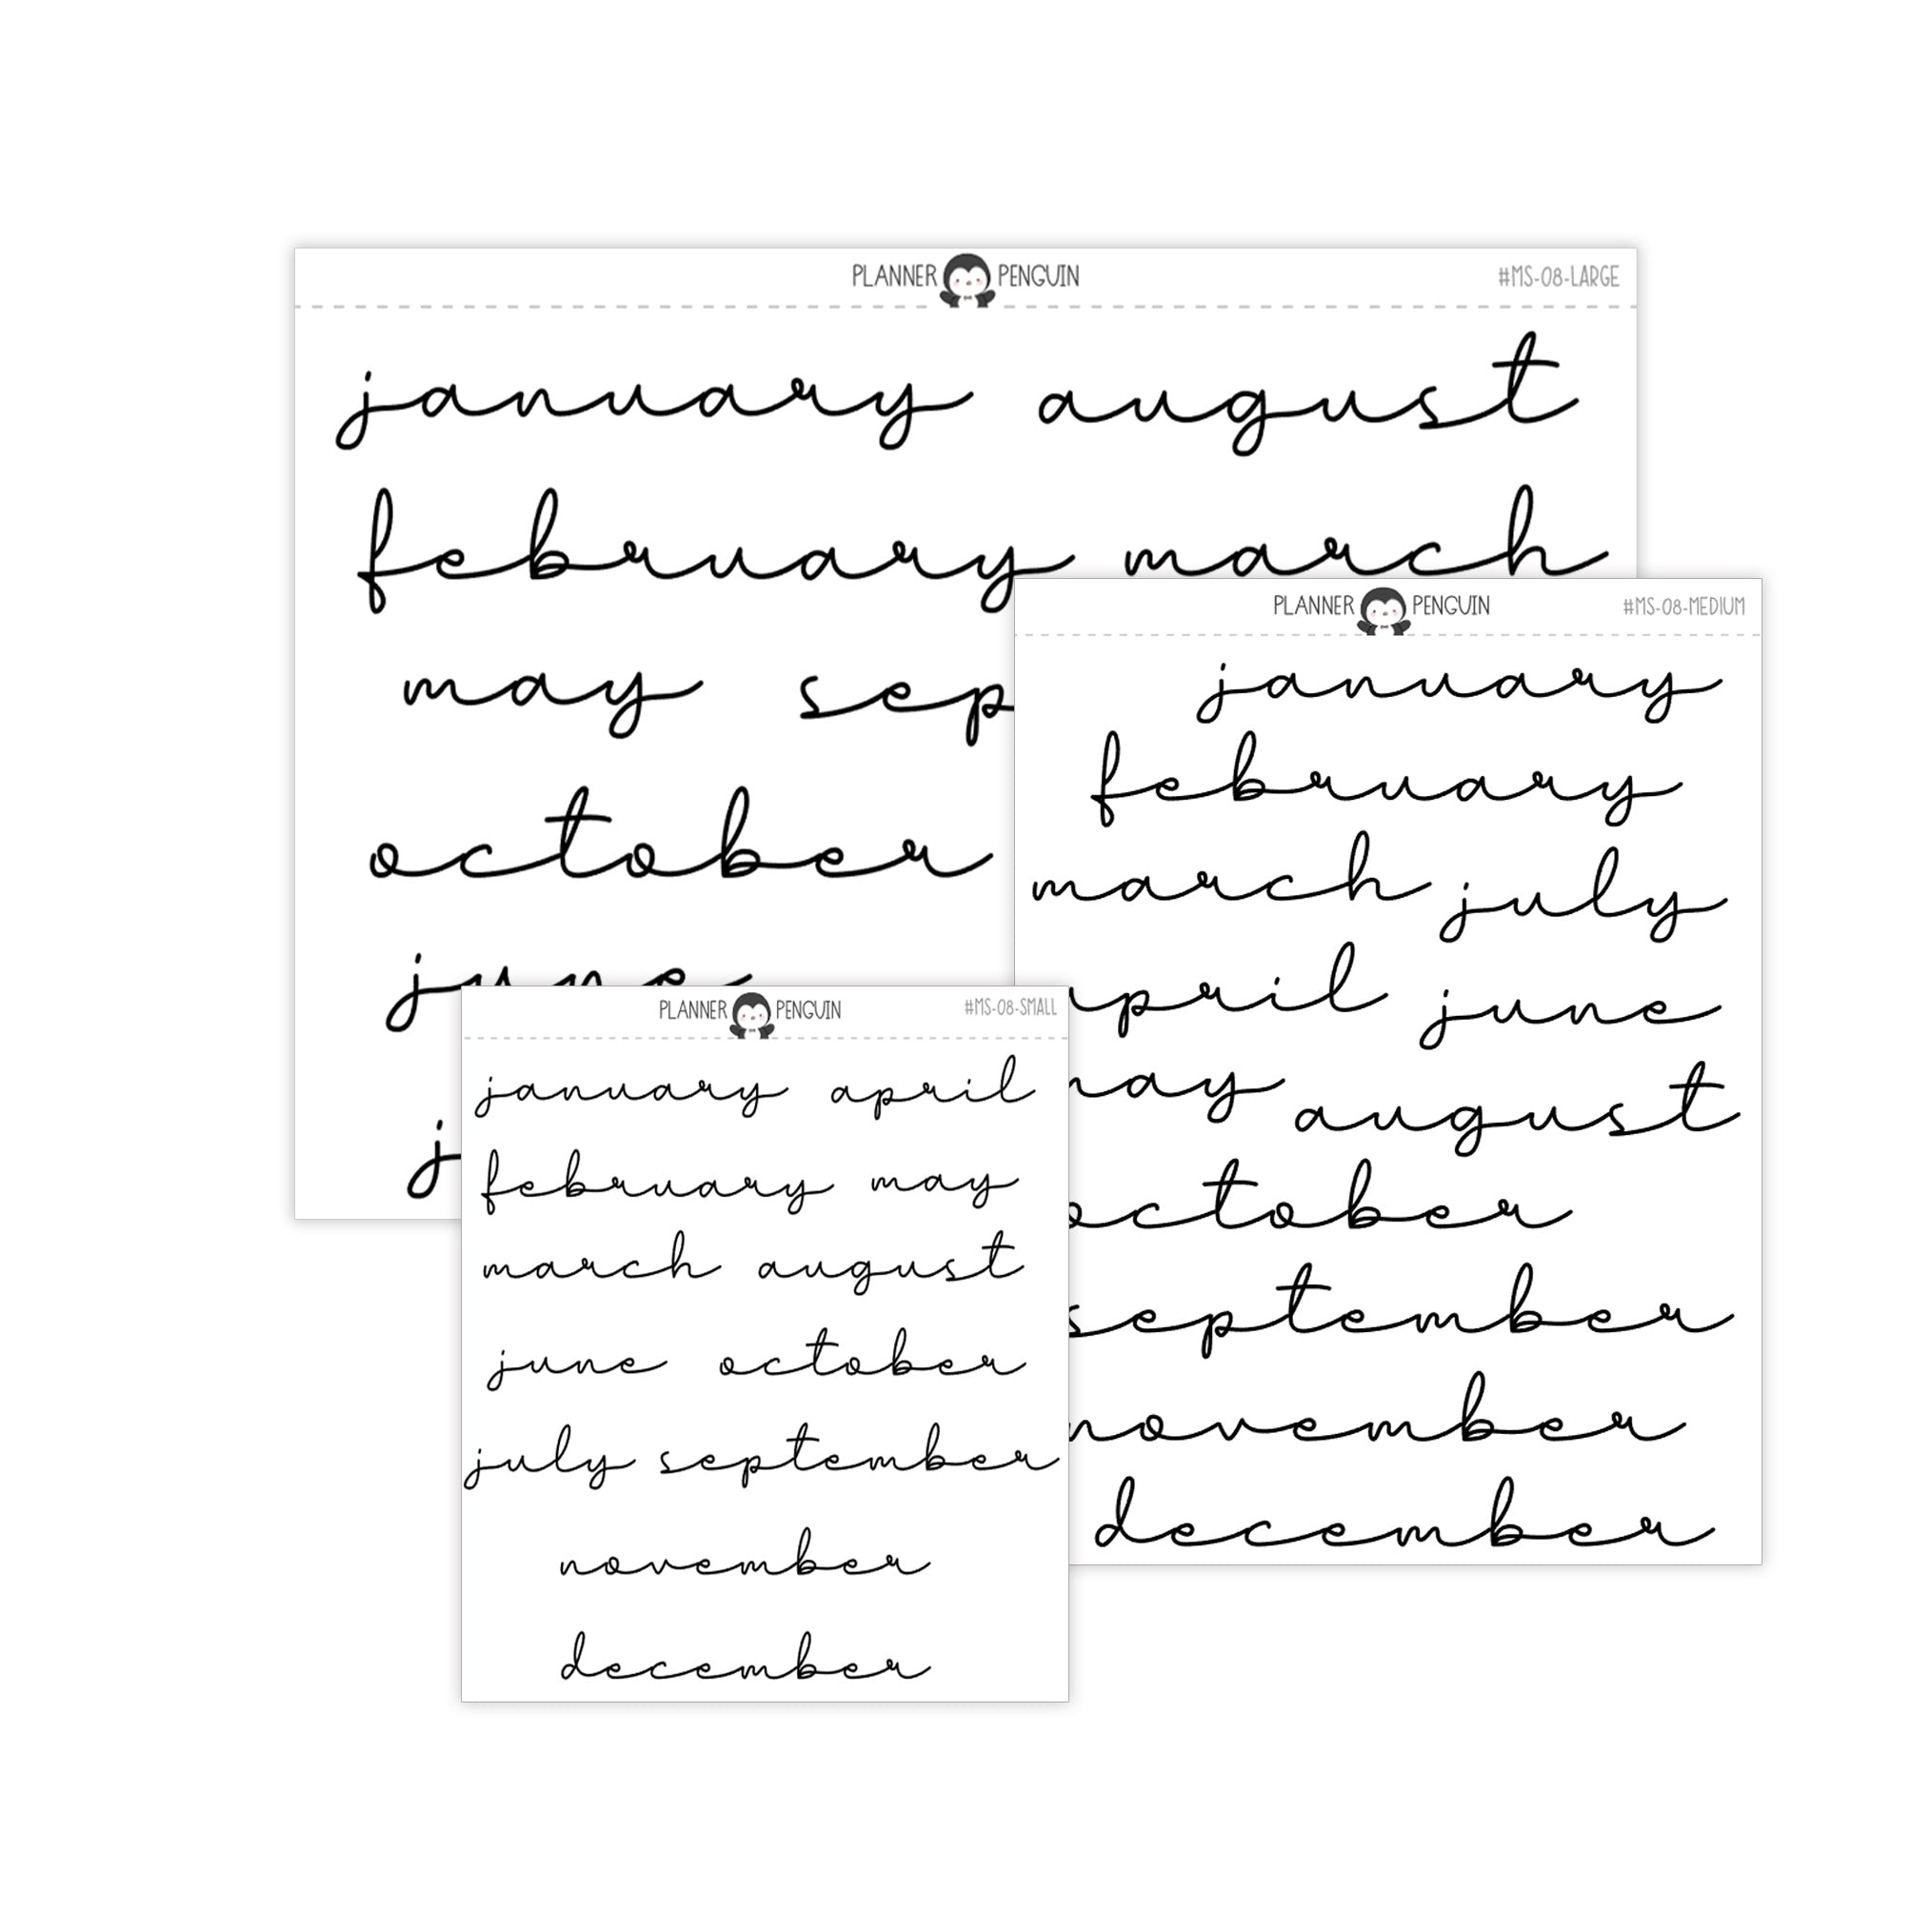 PLANNER PENGUIN #MS-08-LARGE
january august
february march
may sep
october
june
j
PLANNER PENGUIN #MS-08-MEDIUM
january
february
march july
april june
may august
october
september
november
december
PLANNER PENGUIN #MS-08-SMALL
january april
february may
march august
june october
july september
november
december